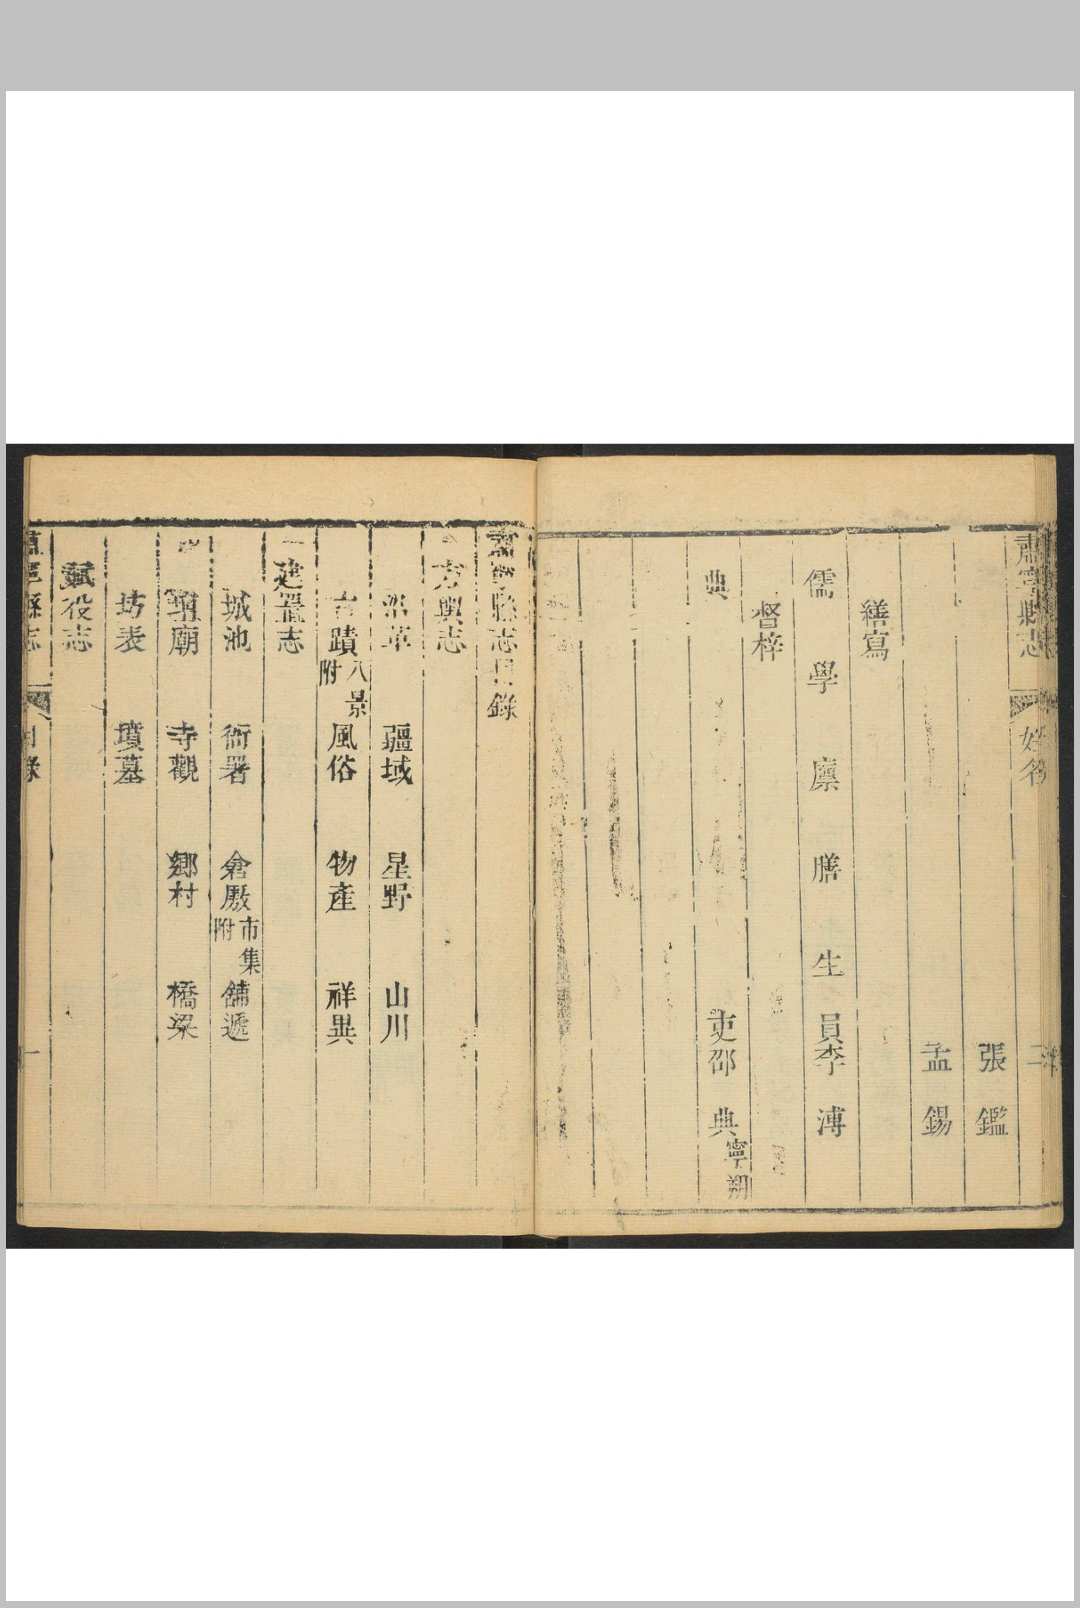 肅寧縣志 姓名 二
張鑑
孟錫
繕寫
儒學廩膳生員李溥
督梓
典吏邵典寧朔
肅寧縣志目錄
方輿志
沿革 疆域 星野 山川
古蹟八景附 風俗 物產 祥異
建置志
城池 衙署 倉厫市集附 舖遞
壇廟 寺觀 鄉村 橋梁
坊表 墳墓
賦役志
肅寧縣志 目錄 一